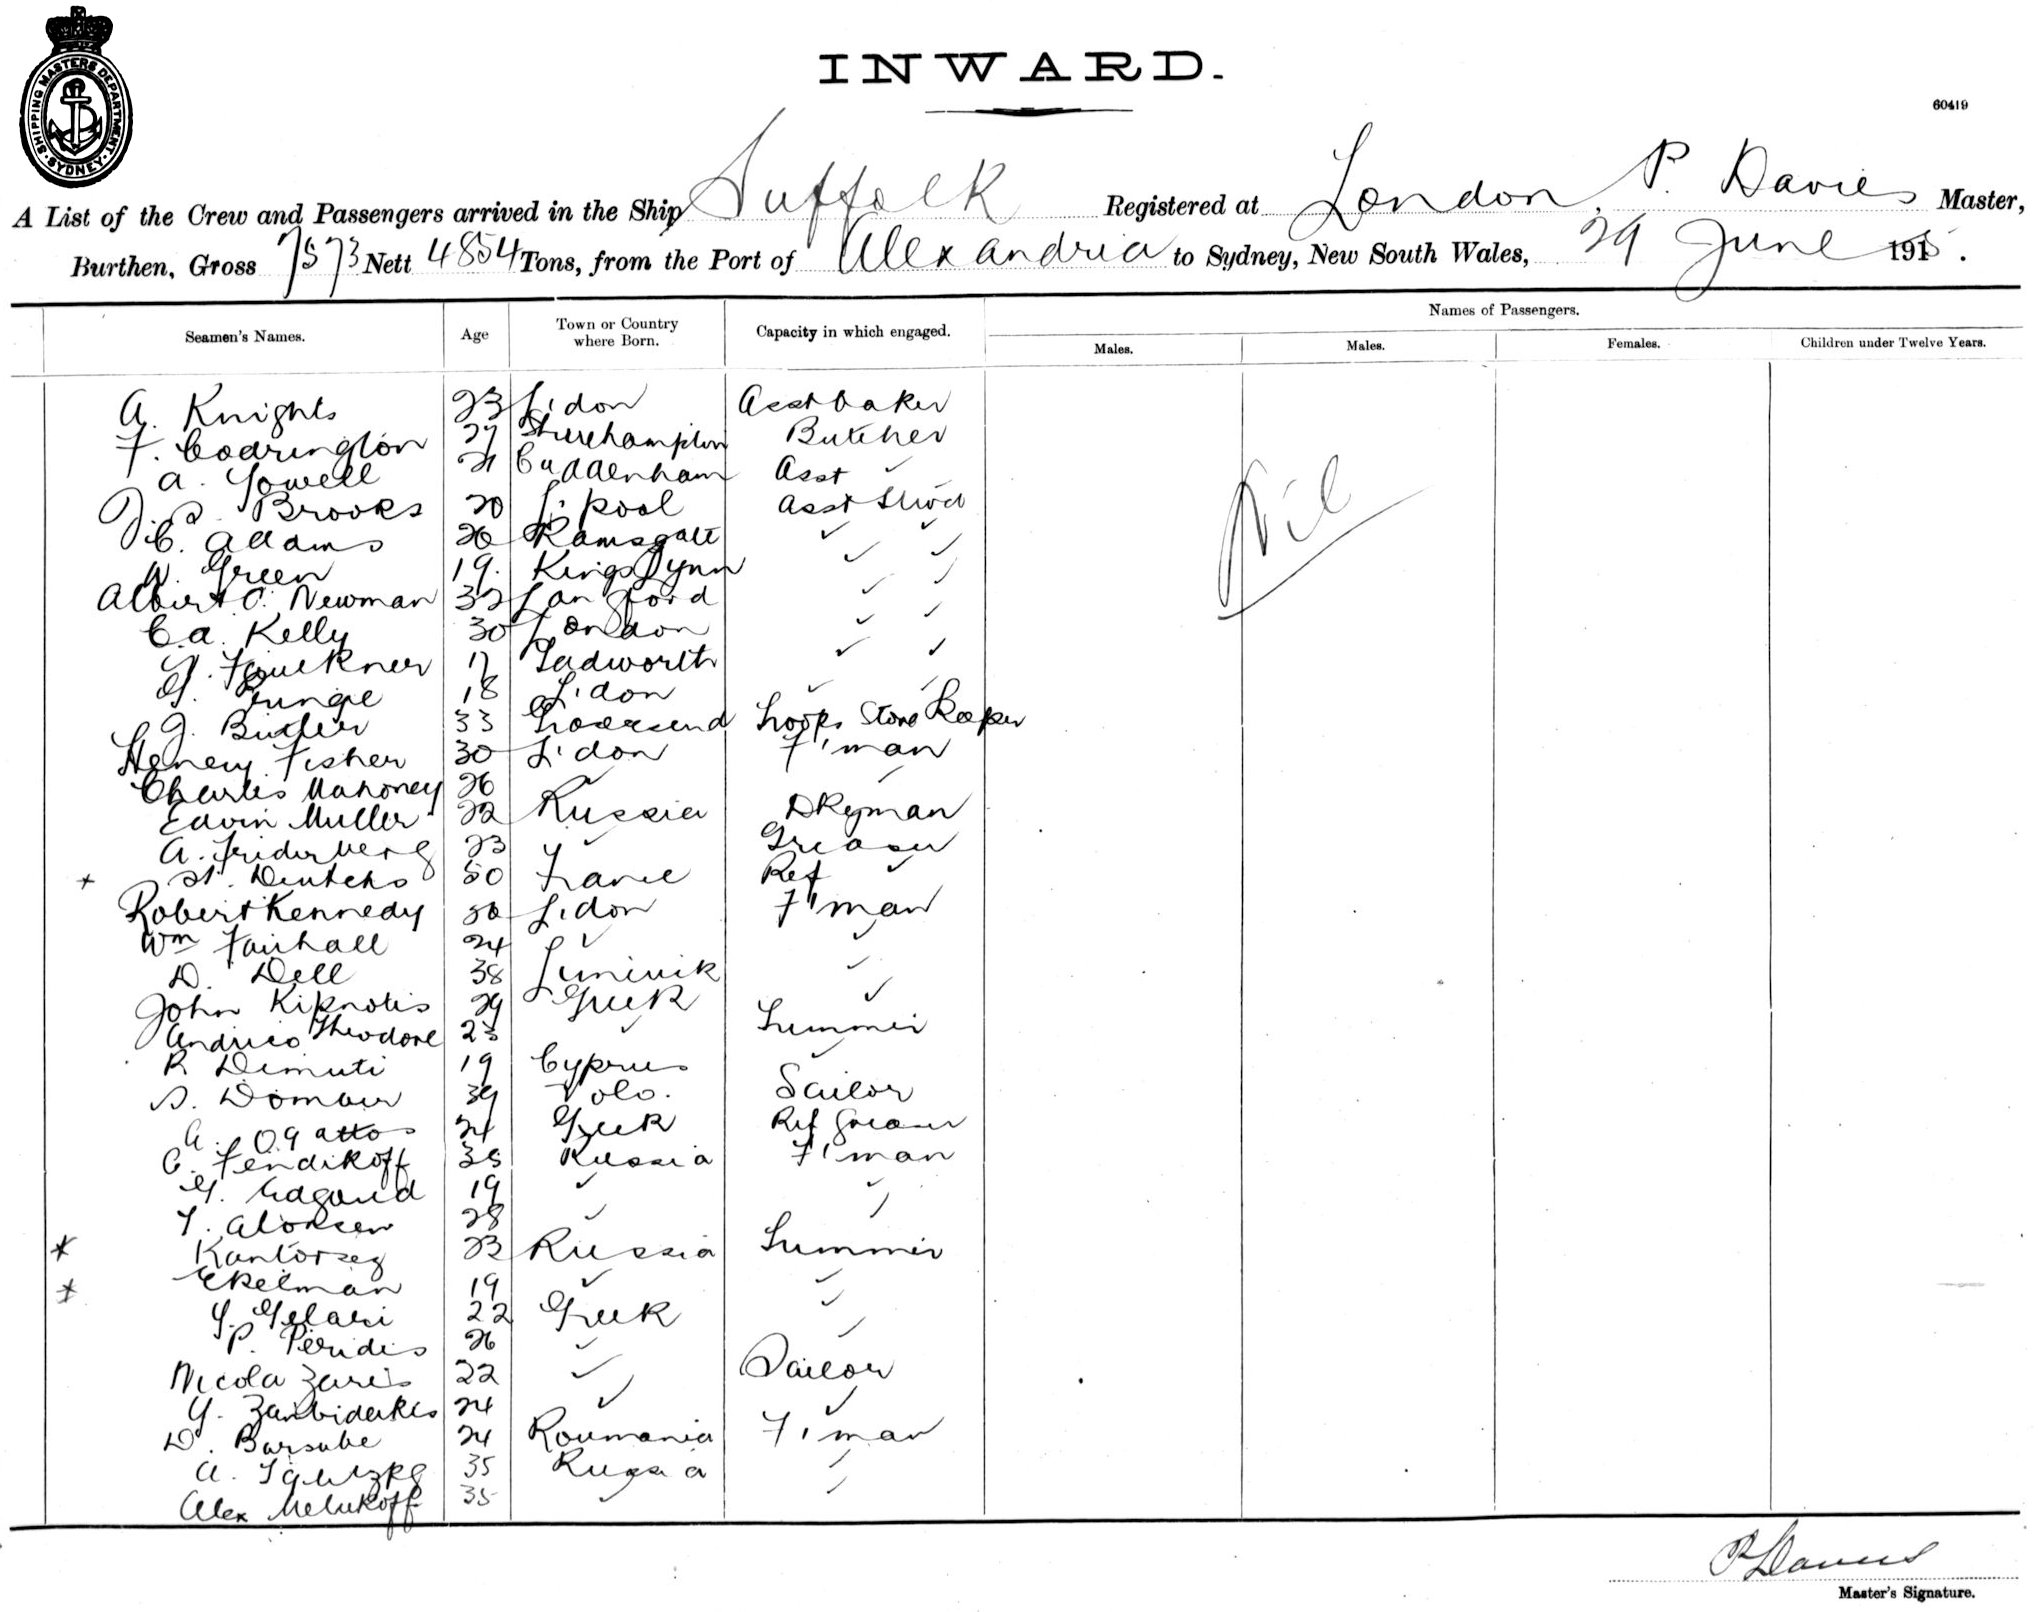 SHIPPING MASTERS DEPARTMENT · SYDNEY ·
INWARD.
60419
A List of the Crew and Passengers arrived in the Ship Suffolk Registered at London, P. Davies Master,
Burthen, Gross 7573 Nett 4854 Tons, from the Port of Alexandria to Sydney, New South Wales, 29 June 1915.
Names of Passengers.
Seamen's Names. Age Town or Country where Born. Capacity in which engaged. Males. Males. Females. Children under Twelve Years.
A. Knights 23 L'don Asst baker
F. Codrington 27 Butcher
A. Yowell 21 Asst ✓
Brooks 20 L'pool Asst Stwd
C. Adams 26 Ramsgate ✓ ✓
W. Green 19. Kings Lynn ✓ ✓
Albert C. Newman 32 Langford ✓ ✓
C. A. Kelly 30 London ✓ ✓
Faulkner 17 Tadworth ✓ ✓
G. Punge 18 L'don ✓ ✓
J. Butler 33 Troops Store Keeper
Henery Fisher 30 L'don F'man
Charles Mahoney 26 ✓ ✓
Edvin Muller 22 Russia DKyman
A. Friderberg 23 ✓ Greaser
50 France Ref ✓
Robert Kennedy L'don F'man
Wm Fairhall 24 ✓ ✓
D. Dell 38 ✓
John Kipnotis 29 Greek ✓
Andrico Theodore 23 ✓ Trimmer
R Dimuti 19 Cyprus ✓
S. Domour 39 Volo. Sailor
A. Ogattos 24 Greek Ref Greaser
C. Fendikoff 35 Russia F'man
19 ✓ ✓
28 ✓
Kantorzeg 23 Russia Trimmer
Ekelman 19 ✓ ✓
Y. Gelari 22 Greek ✓
P. Peridis 26 ✓ ✓
Nicola Zaris 22 ✓ Sailor
24 ✓ ✓
D. Barsabe 24 Roumania F'man
A. 35 Russia ✓
Alex Melukoff 35 ✓ ✓
Nil
P Davies
Master's Signature.